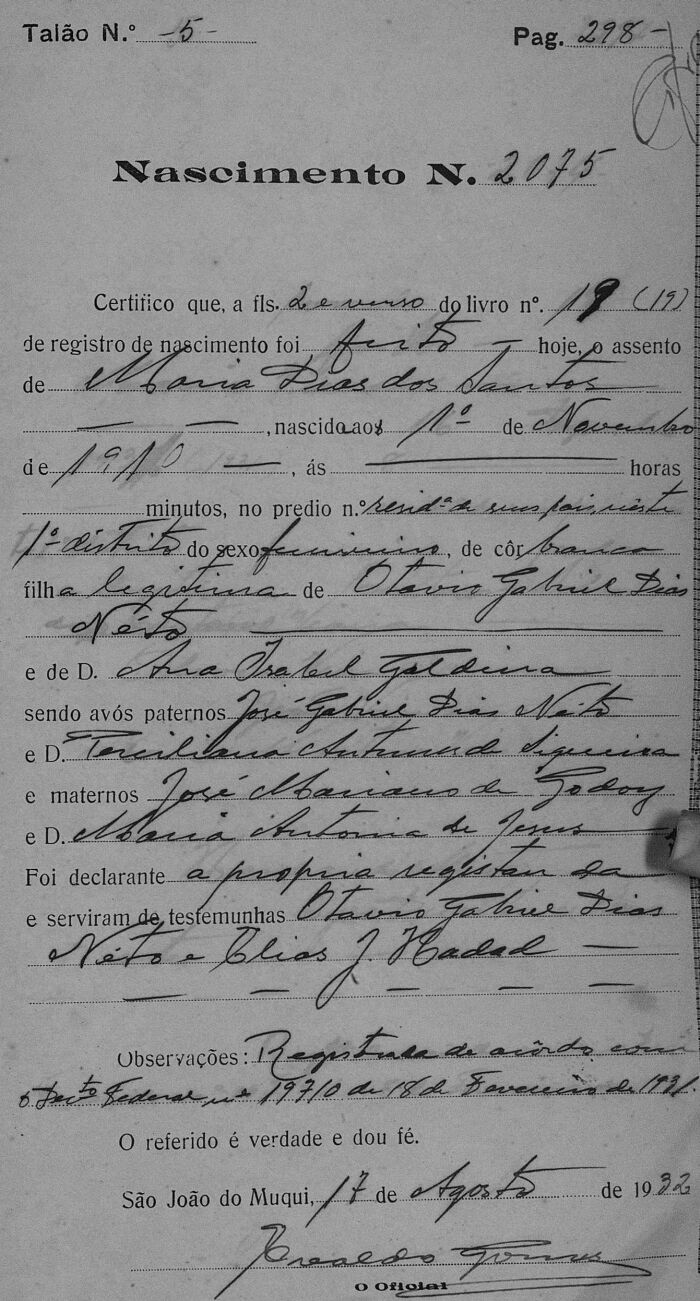 Talão N.º -5- Pag. 298-
Nascimento N. 2075
Certifico que, a fls. 2 e verso do livro nº. 19 (19)
de registro de nascimento foi feito - hoje, o assento
de Maria Dias dos Santos
— — , nascida aos 1º de Novembro
de 1910 — , ás — horas
minutos, no predio n.º resid.ª de seus pais, neste
1º distrito do sexo feminino, de côr branca
filha legitima de Otavio Gabriel Dias
Néto —
e de D. Ana Isabel Galdina
sendo avós paternos José Gabriel Dias Neto
e D. Perciliana Antunes de Siqueira
e maternos José Mariano de Godoy
e D. Maria Antonia de Jesus
Foi declarante a propria registanda
e serviram de testemunhas Otavio Gabriel Dias
Néto e Elias J. Hadad —
— — — — —
Observações: Registrada de acôrdo com
o Decto Federal nº 19710 de 18 de Fevereiro de 1931.
O referido é verdade e dou fé.
São João do Muqui, 17 de Agosto de 1932
Gomes
O Oficial